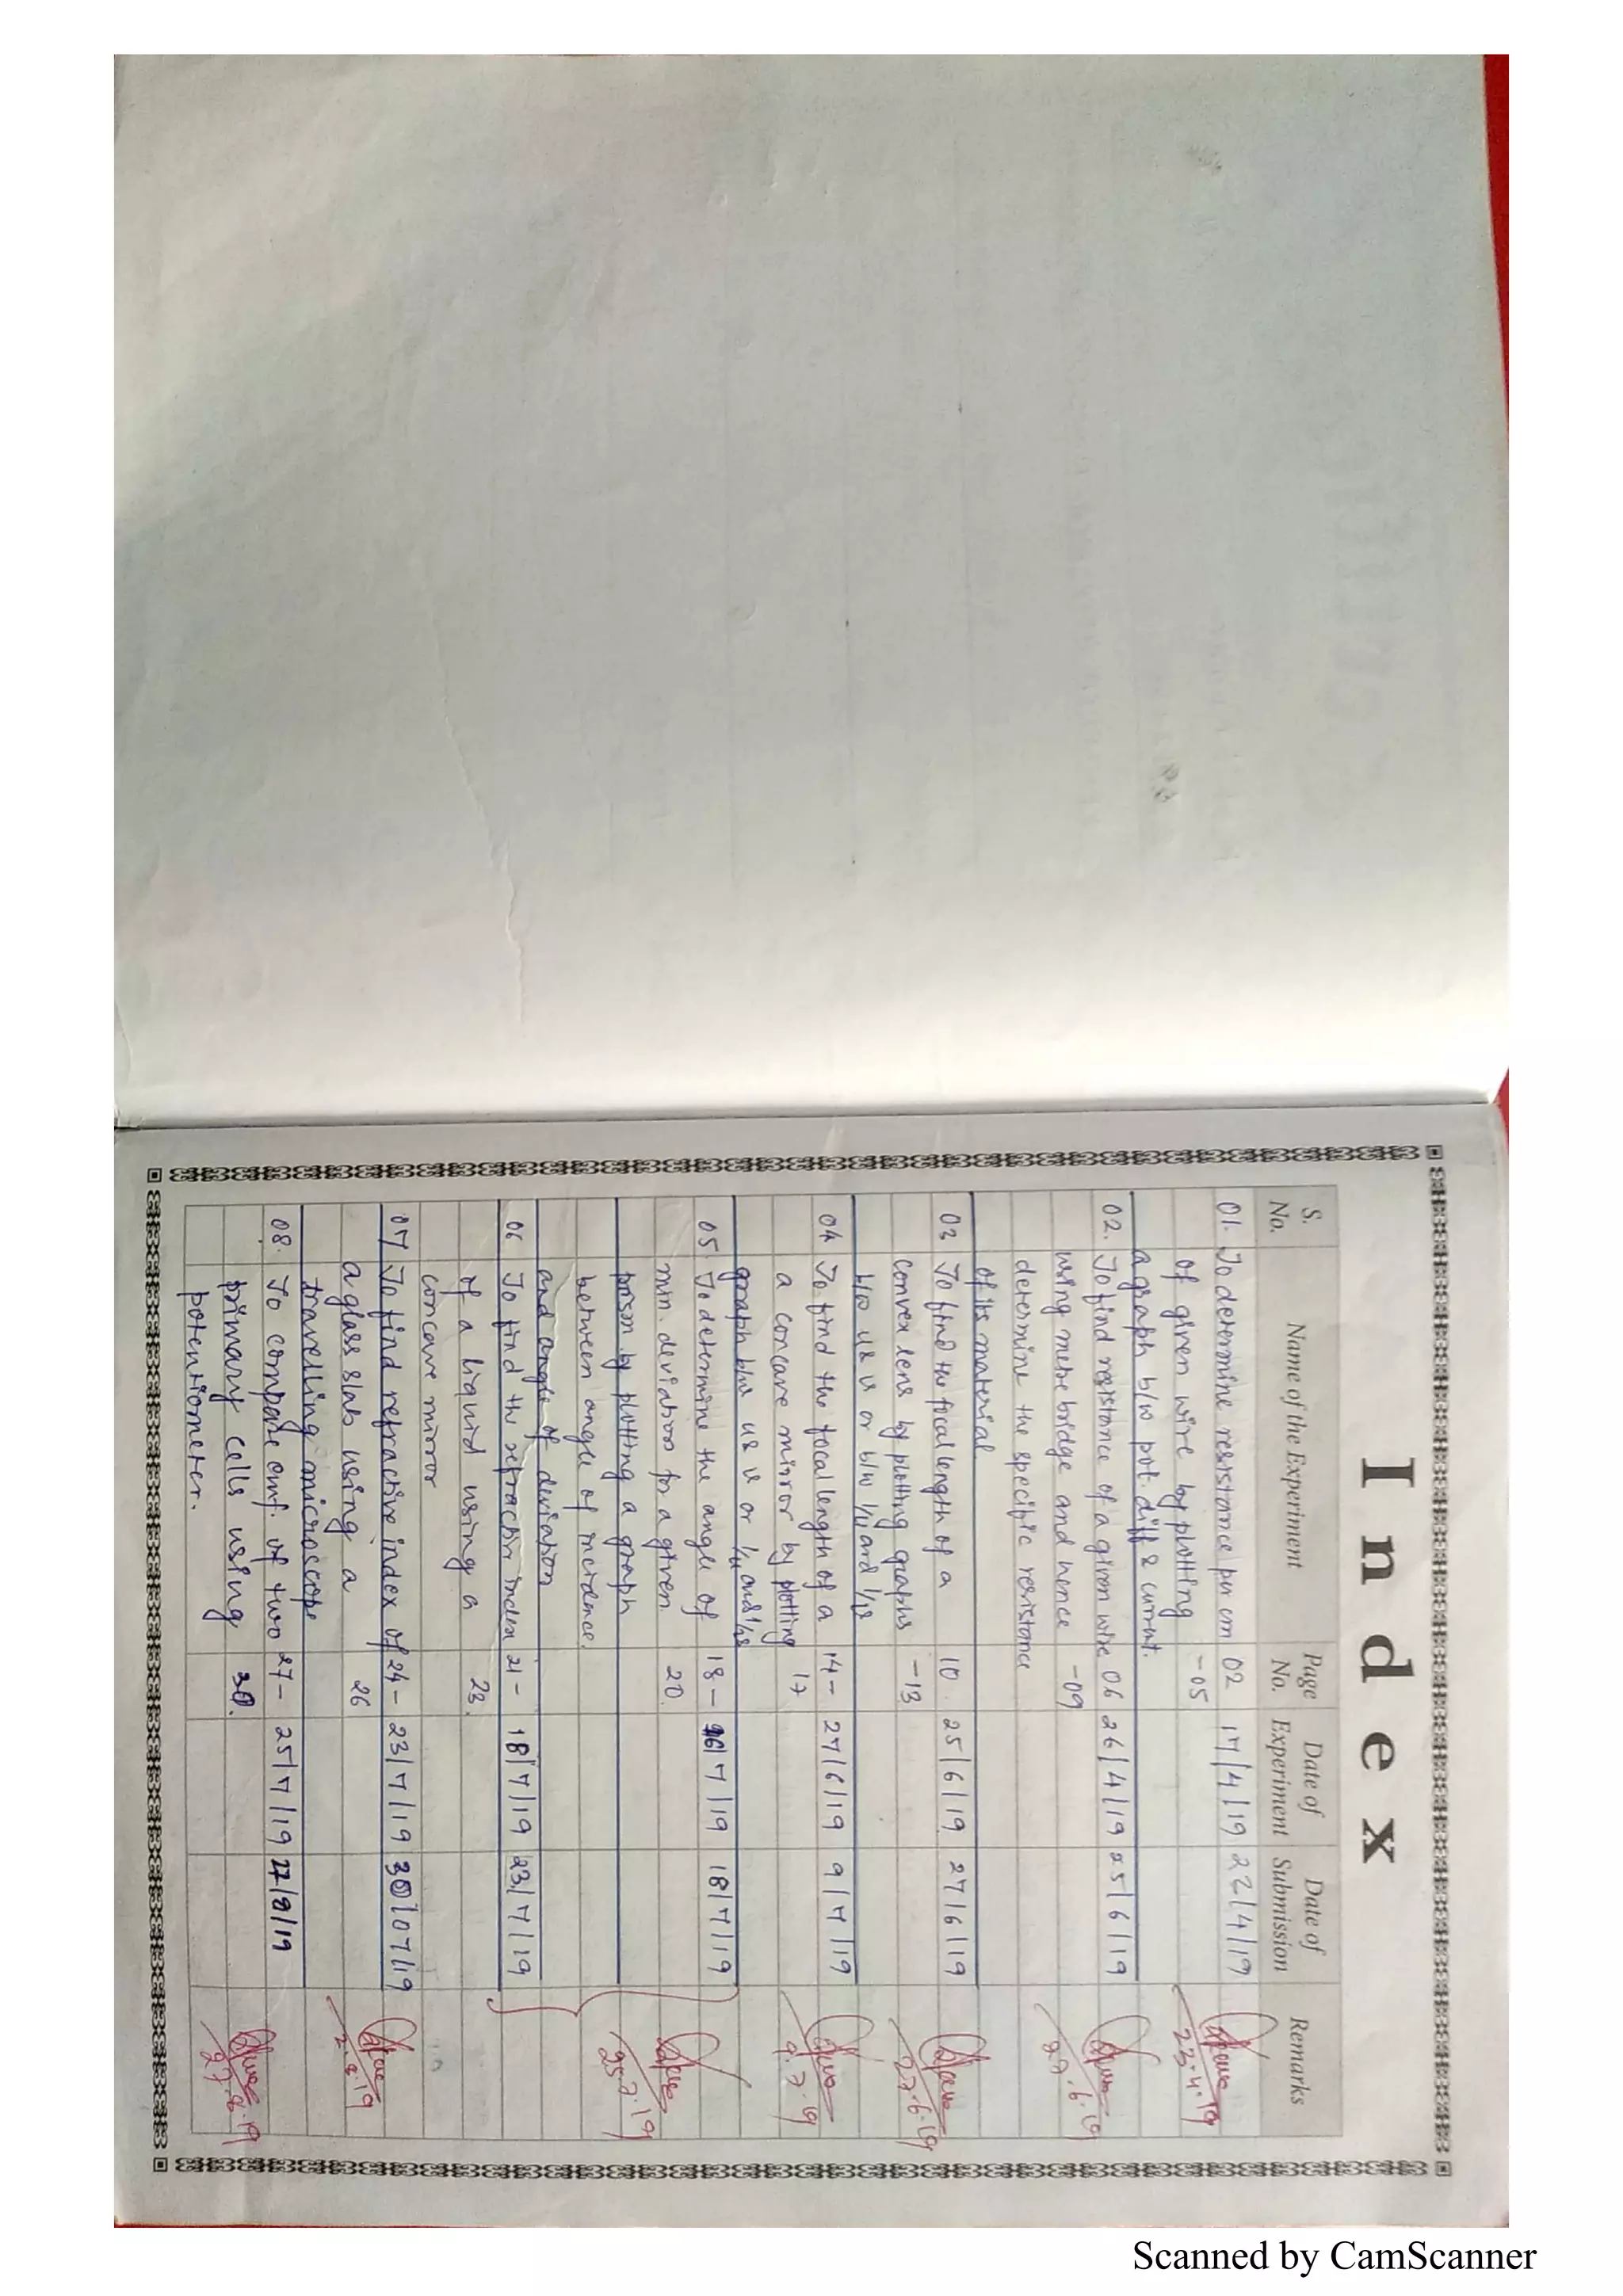 Index
S. No. Name of the Experiment Page No. Date of Experiment Date of Submission Remarks
01. To determine resistance per cm 02 17/4/19 22/4/19
of given wire by plotting -05 23.4.19
a graph b/w pot. diff & current.
02. To find resistance of a given wire 06 26/4/19 25/6/19
using metre bridge and hence -09 27.6.19
determine the specific resistance
of its material
03 To find the focal length of a 10 25/6/19 27/6/19
convex lens by plotting graphs -13 27.6.19
b/w u & v or b/w 1/u and 1/v
04 To find the focal length of a 14- 27/6/19 9/7/19
a concave mirror by plotting 17 9.7.19
graph b/w u & v or 1/u and 1/v
05. To determine the angle of 18- 16/7/19 18/7/19
min. deviation for a given 20
prism by plotting a graph 25.7.19
between angle of incidence.
and angle of deviation
06 To find the refraction index 21- 18/7/19 23/7/19
of a liquid using a 23.
concave mirror
07 To find refractive index of 24- 23/7/19 30/07/19
a glass slab using a 26 2.8.19
travelling microscope
08. To compare emf. of two 27- 25/7/19 27/8/19
primary cells using 30. 27.8.19
potentiometer.
Scanned by CamScanner